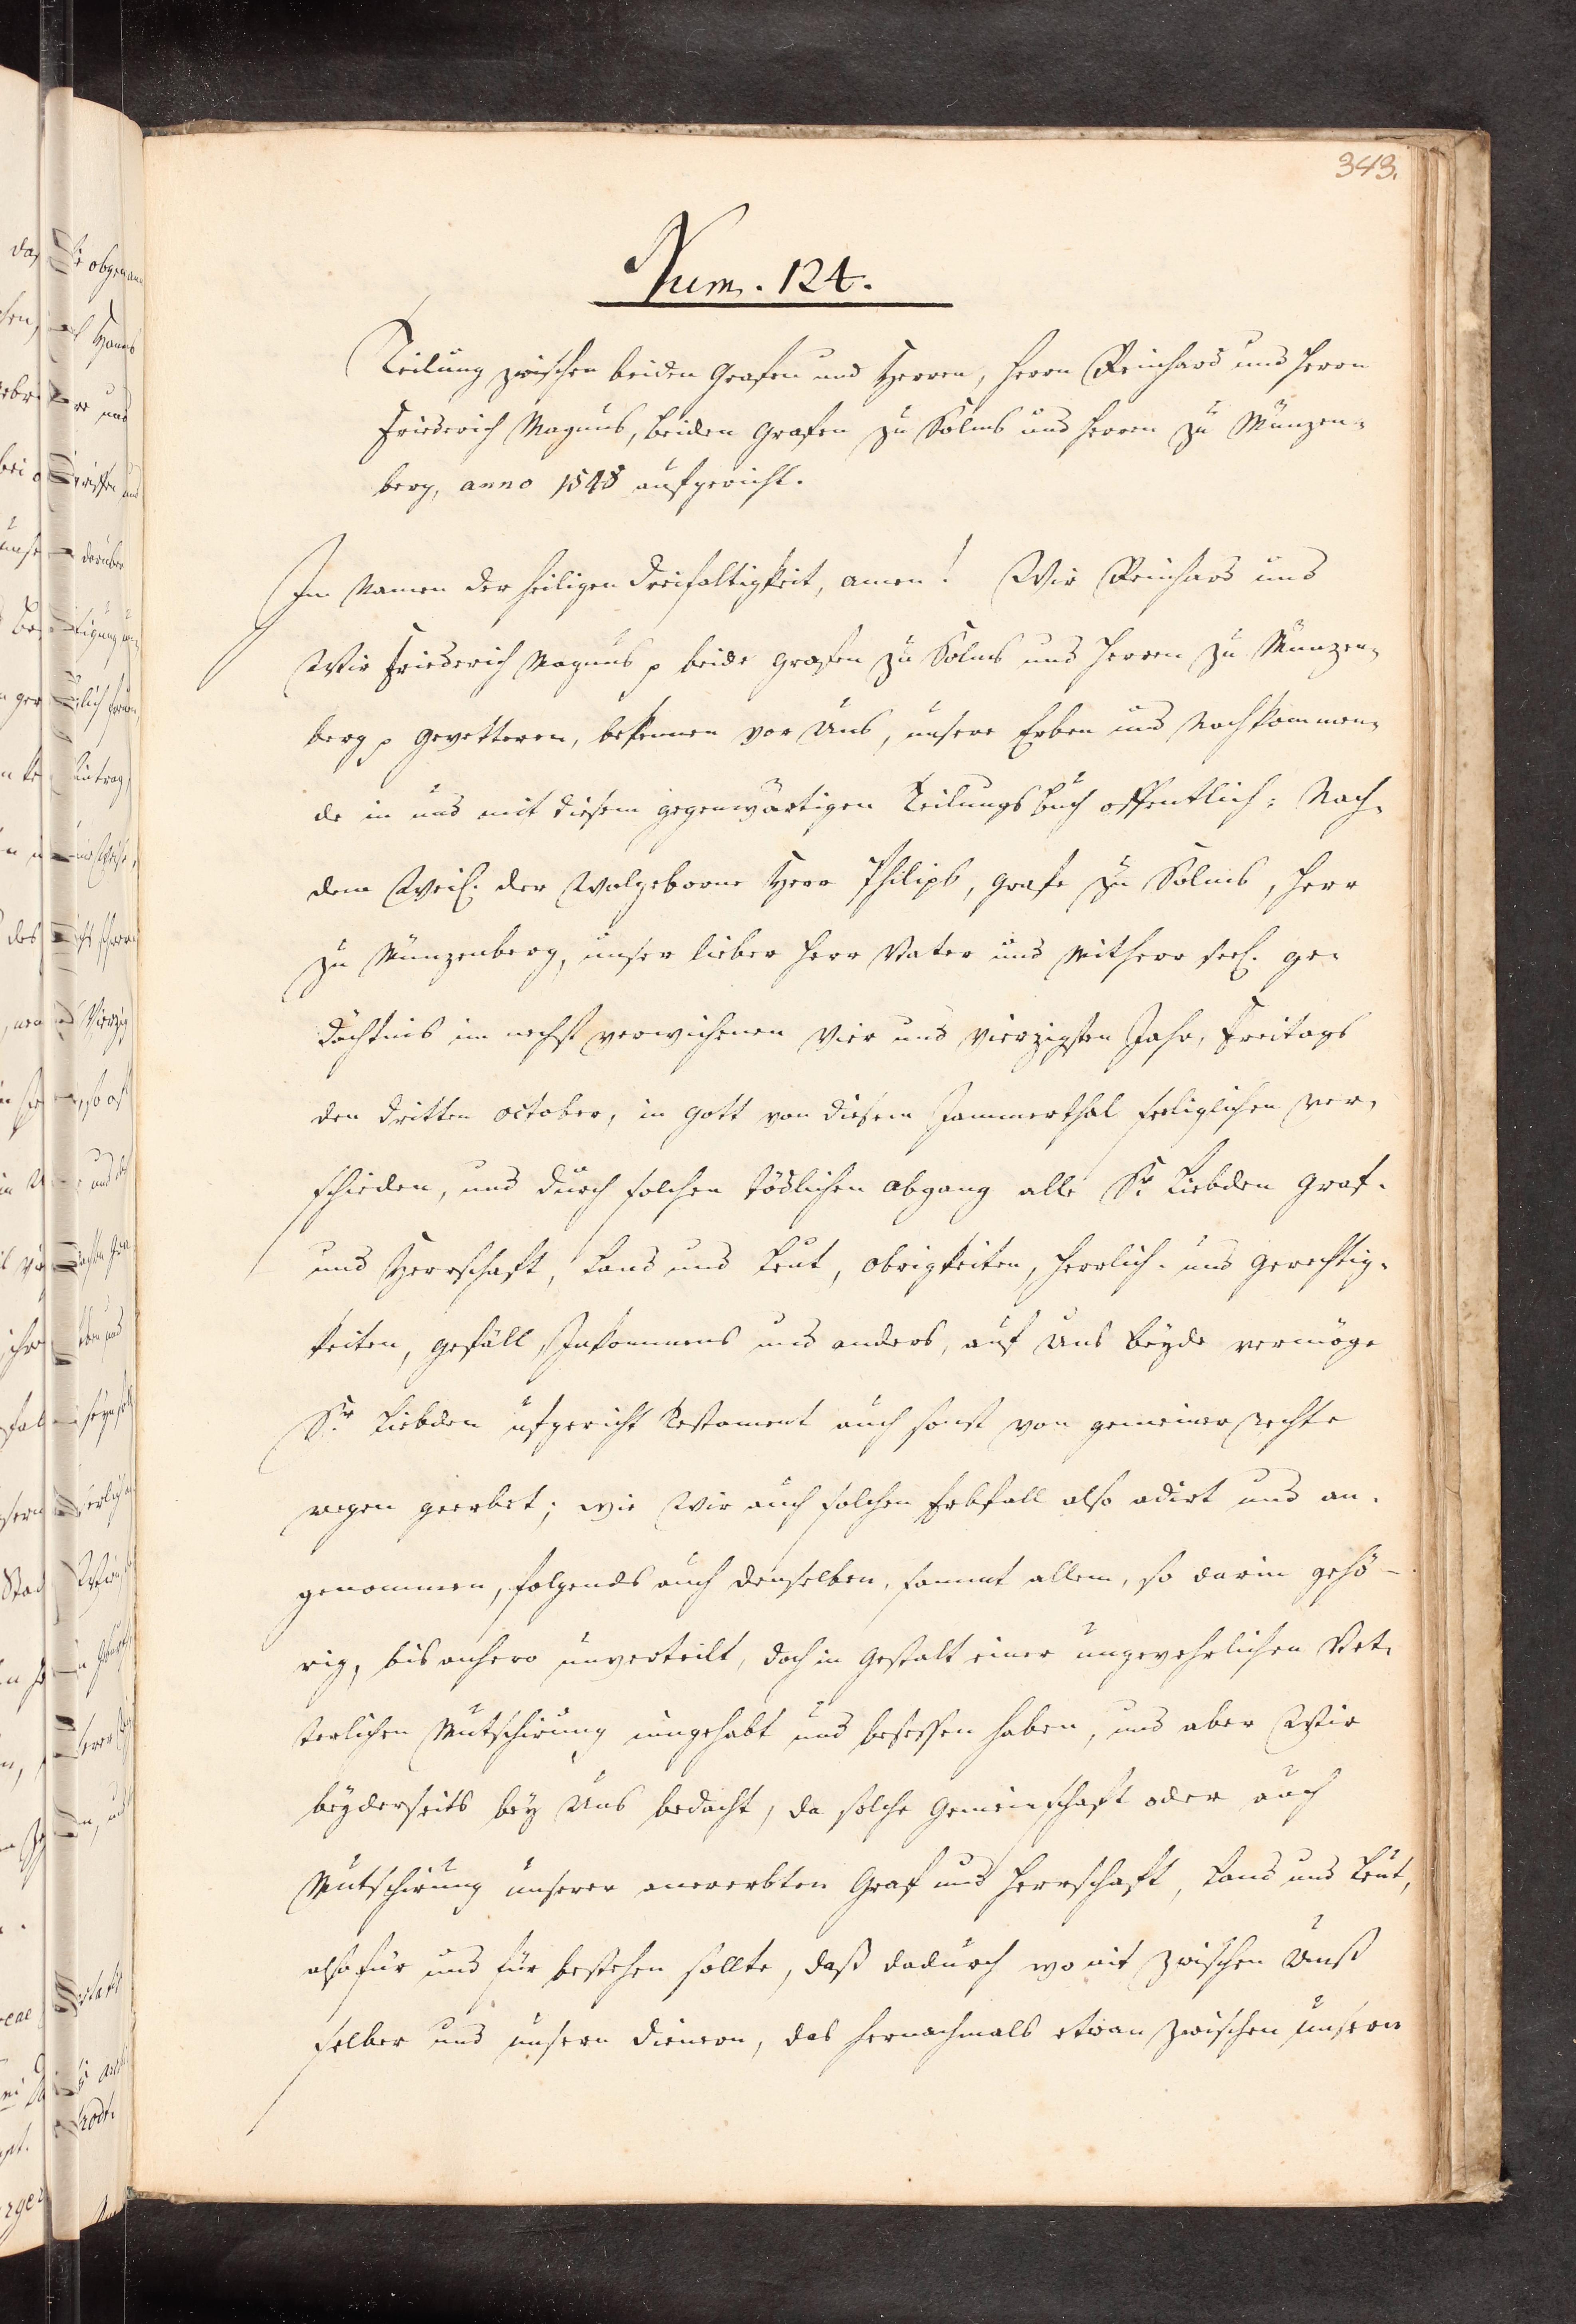 343.
Num. 124.
Teilung zwischen beiden Grafen und Herren, Herrn Reinhard und Herrn
Friederich Magnus, beiden Grafen zu Solms und Herren zu Münzen-
berg, anno 1548 aufgericht.
Im Namen der heiligen Dreifaltigkeit, amen! Wir Reinhard und
Wir Friederich Magnus p beide Grafen zu Solms und Herren zu Münzen-
berg p Gevetteren, bekennen vor Uns, unsere Erben und Nachkommen-
de in und mit diesem gegenwärtigen Teilungsbuch offentlich: Nach-
dem Weil. der Wolgeborne Herr Philips, Grafe zu Solms, Herr
zu Münzenberg, unser lieber Herr Vater und Mitherr seel. ge-
dächtnis im nechst verwichenen Vier und Vierzigsten Jahr, Freitags
den dritten october, in Gott von diesem Jammerthal seeliglichen ver-
schieden, und durch solchen tödlichen abgang alle Sr. Liebden Graf-
und Herrschaft, Land und Leut, Obrigkeiten, Herrlich- und Gerechtig-
keiten, Gefäll, Inkommens und anders, auf Uns beyde vermöge
Sr. Liebden ufgericht Testament auch sonst von gemeiner Rechte
wegen geerbet; wie Wir auch solchen Erbfall also adirt und an-
genommen, folgends auch denselben, sammt allem, so darin gehö-
rig, bis anhero unverteilt, doch in Gestalt einer ungevehrlichen Vet-
terlichen Mutschirung ingehabt und besessen haben, und aber Wir
beyderseits bey Uns bedacht, da solche Gemeinschaft oder auch
Mutschirung unserer anererbten Graf und Herrschaft, Land und Leut,
also für und für bestehen sollte, daß dadurch wo nit zwischen Unß
selber und unsern Dienern, das hernachmals etwan zwischen unsern